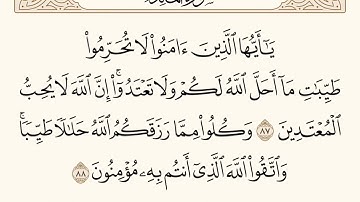 يَـٰٓأَيُّهَا ٱلَّذِينَ ءَامَنُوا۟ لَا تُحَرِّمُوا۟
طَيِّبَـٰتِ مَآ أَحَلَّ ٱللَّهُ لَكُمْ وَلَا تَعْتَدُوٓا۟ ۚ إِنَّ ٱللَّهَ لَا يُحِبُّ
ٱلْمُعْتَدِينَ ٨٧ وَكُلُوا۟ مِمَّا رَزَقَكُمُ ٱللَّهُ حَلَـٰلًا طَيِّبًا ۚ
وَٱتَّقُوا۟ ٱللَّهَ ٱلَّذِىٓ أَنتُم بِهِۦ مُؤْمِنُونَ ٨٨